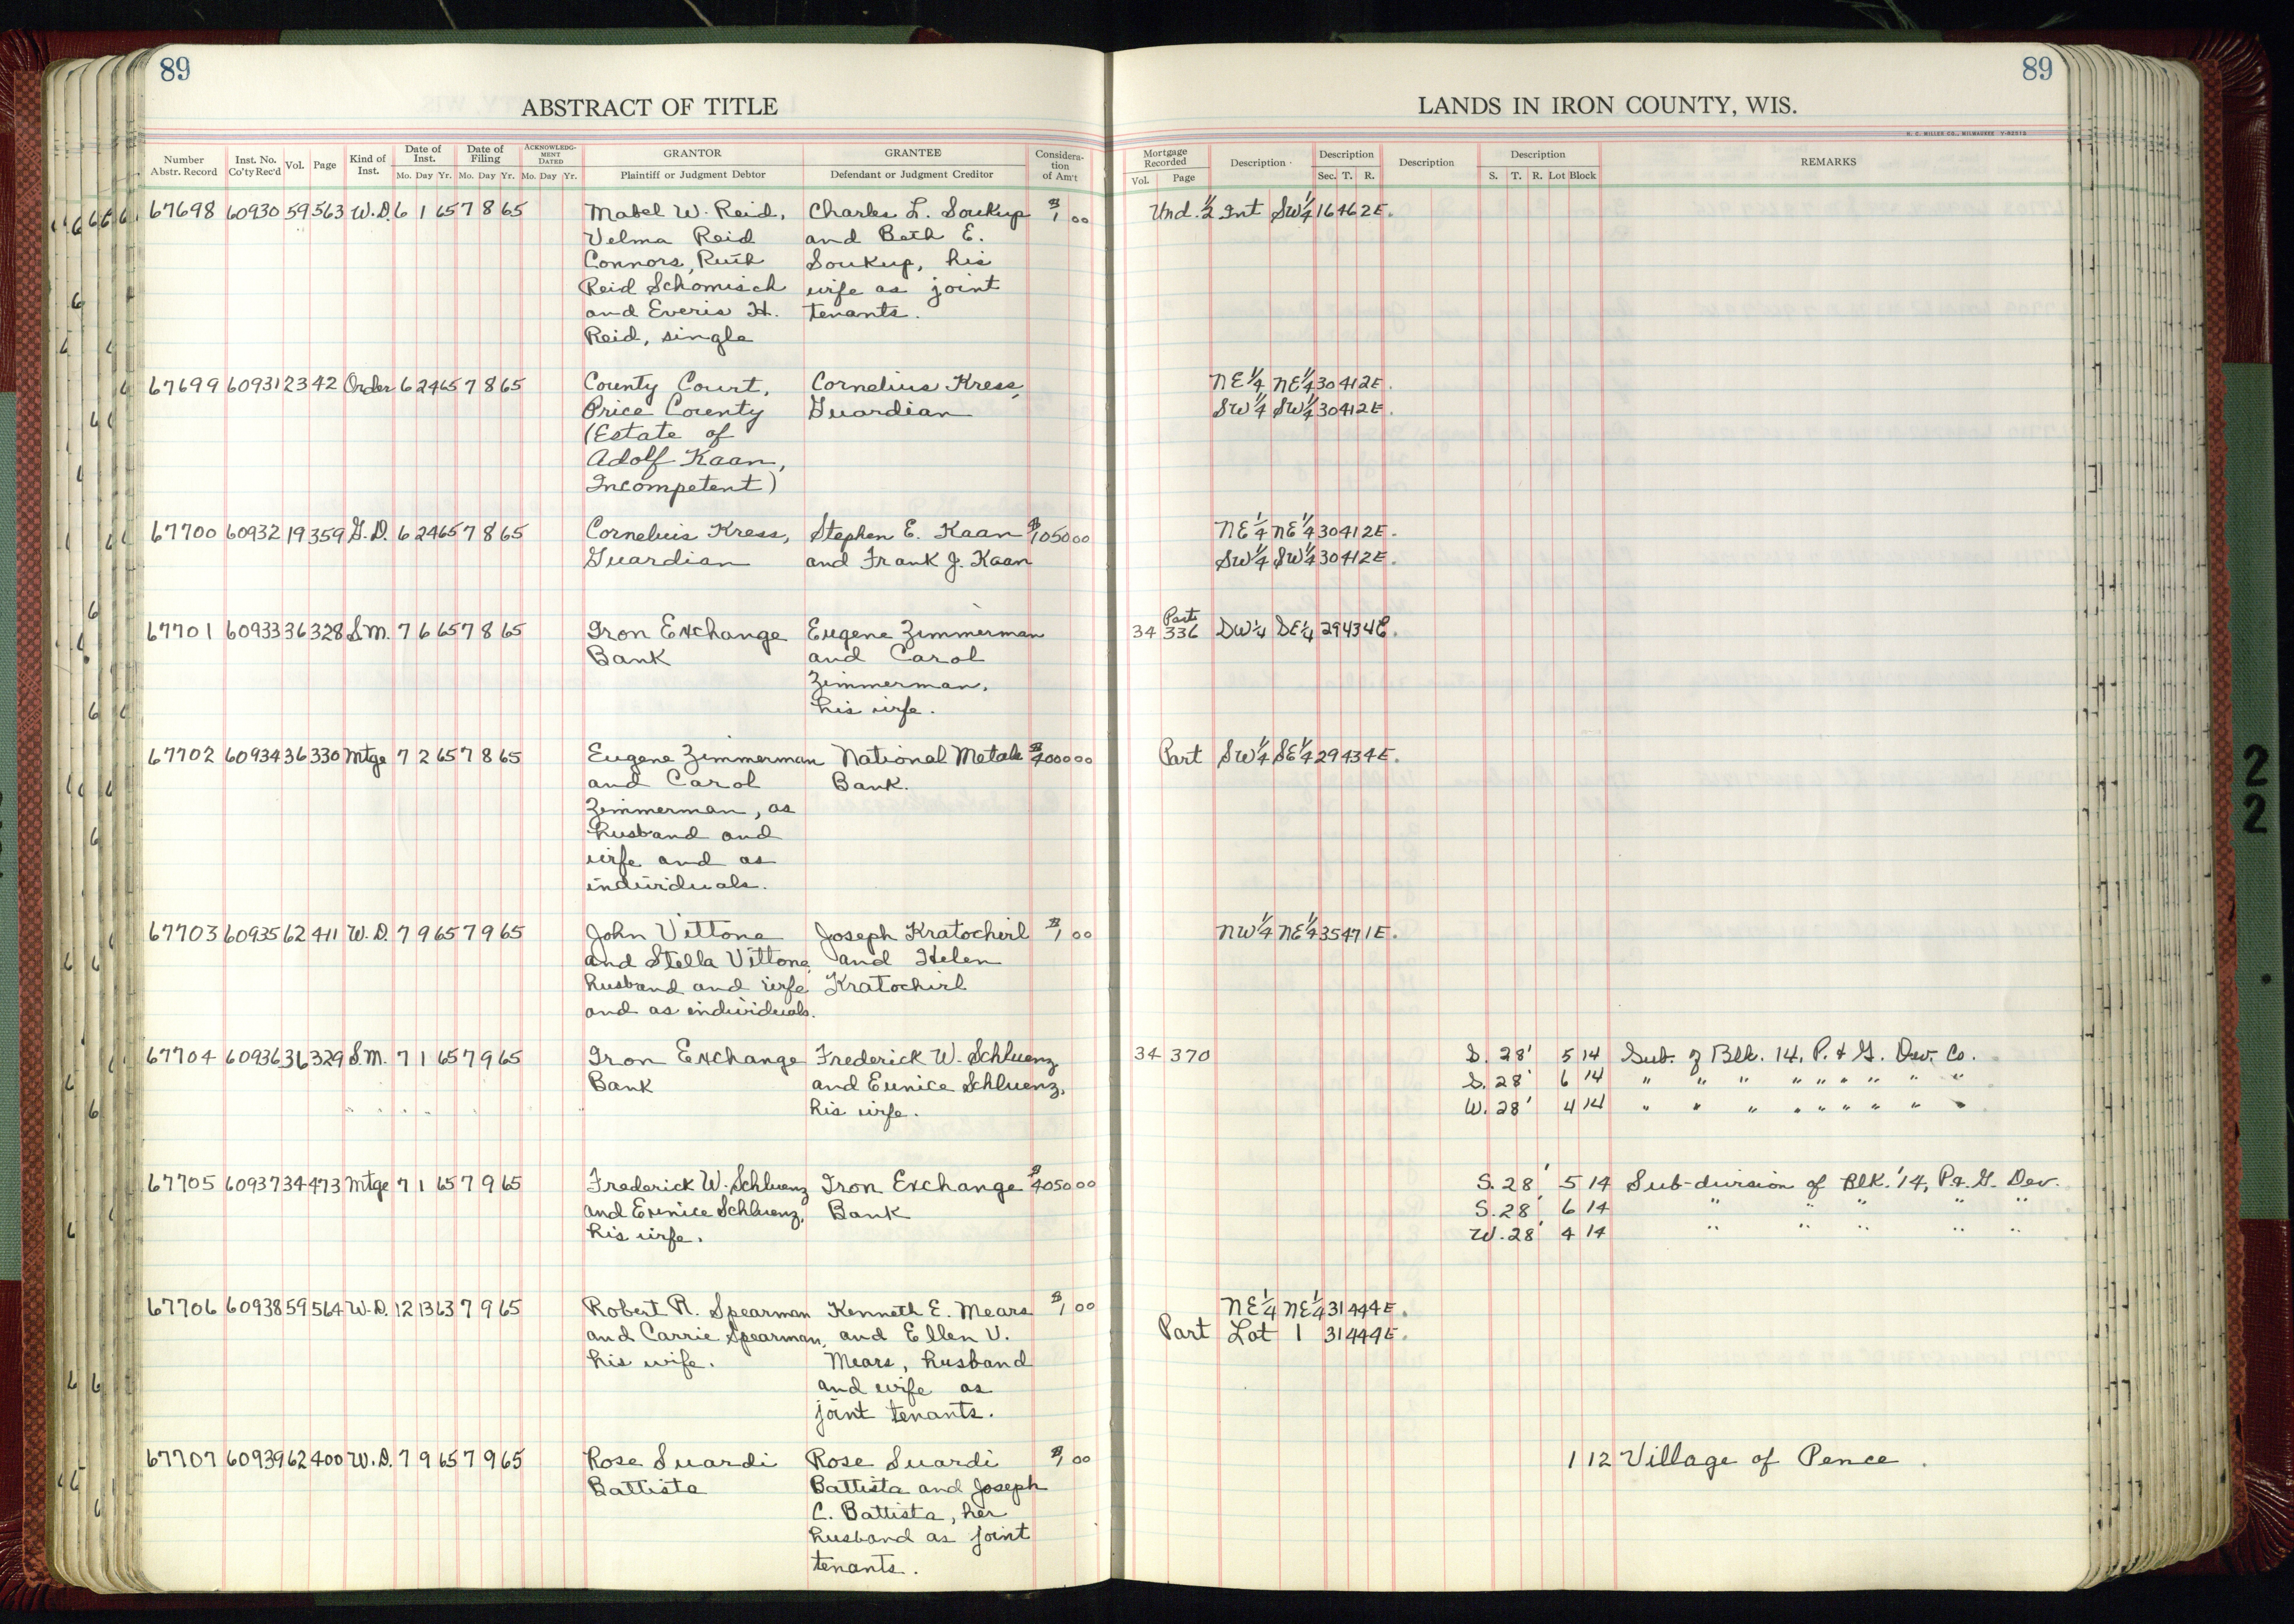 89
89
ABSTRACT OF TITLE
LANDS IN IRON COUNTY, WIS.
H. C. MILLER CO., MILWAUKEE
Number Abstr. Record Inst. No. Co'ty Rec'd Vol. Page Kind of Inst. Date of Inst. Mo. Day Yr. Date of Filing Mo. Day Yr. ACKNOWLEDGMENT DATED Mo. Day Yr. GRANTOR Plaintiff or Judgment Debtor GRANTEE Defendant or Judgment Creditor Consideration of Am't
Mortgage Recorded Vol. Page Description Description Sec. T. R. Description Description S. T. R. Lot Block REMARKS
67698 60930 59 563 W.D. 6 1 65 7 8 65 Mabel W. Reid, Charles L. Soukup $1 00 Und. 1/2 Int SW1/4 16 46 2E.
Velma Reid and Beth E.
Connors, Ruth Soukup, his
Reid Schomisch wife as joint
and Everis H. tenants.
Reid, single
67699 60931 23 42 Order 6 24 65 7 8 65 County Court, Cornelius Kress, NE1/4 NE1/4 30 41 2E.
Price County Guardian SW1/4 SW1/4 30 41 2E.
(Estate of
Adolf Kaan,
Incompetent)
67700 60932 19 359 G.D. 6 24 65 7 8 65 Cornelius Kress, Stephen E. Kaan $1050 00 NE1/4 NE1/4 30 41 2E.
Guardian and Frank J. Kaan SW1/4 SW1/4 30 41 2E.
67701 60933 36 328 S.M. 7 6 65 7 8 65 Iron Exchange Eugene Zimmerman 34 336 Part SW1/4 SE1/4 29 43 4E.
Bank and Carol
Zimmerman,
his wife.
67702 60934 36 330 Mtge 7 2 65 7 8 65 Eugene Zimmerman National Metals $4000 00 Part SW1/4 SE1/4 29 43 4E.
and Carol Bank.
Zimmerman, as
husband and
wife and as
individuals.
67703 60935 62 411 W.D. 7 9 65 7 9 65 John Vittone Joseph Kratochvil $1 00 NW1/4 NE1/4 35 47 1E.
and Stella Vittone, and Helen
husband and wife Kratochvil
and as individuals.
67704 60936 36 329 S.M. 7 1 65 7 9 65 Iron Exchange Frederick W. Schluenz 34 370 S. 28' 5 14 Sub. of Blk. 14, P. & G. Dev. Co.
Bank and Eunice Schluenz, S. 28' 6 14 " " " " " " " " "
his wife. W. 28' 4 14 " " " " " " " " "
67705 60937 34 473 Mtge 7 1 65 7 9 65 Frederick W. Schluenz Iron Exchange $4050 00 S. 28' 5 14 Sub-division of Blk. 14, P. & G. Dev.
and Eunice Schluenz, Bank S. 28' 6 14 " " " " "
his wife. W. 28' 4 14 " " " " "
67706 60938 59 564 W.D. 12 13 63 7 9 65 Robert R. Spearman Kenneth E. Mears $1 00 NE1/4 NE1/4 31 44 4E.
and Carrie Spearman, and Ellen V. Part Lot 1 31 44 4E.
his wife. Mears, husband
and wife as
joint tenants.
67707 60939 62 400 W.D. 7 9 65 7 9 65 Rose Suardi Rose Suardi $1 00 1 12 Village of Pence.
Battista Battista and Joseph
C. Battista, her
husband as joint
tenants.
2
2